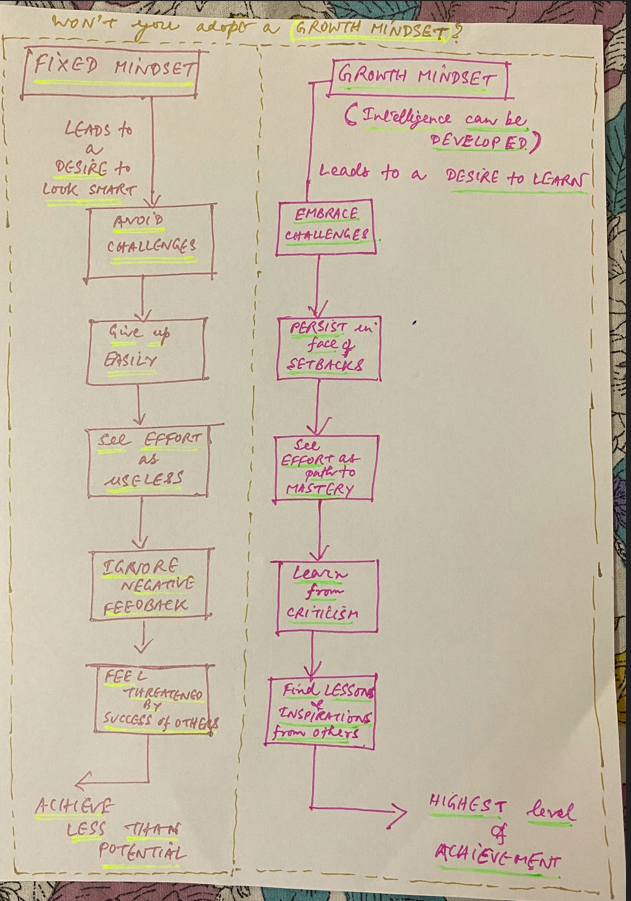 WON'T you adopt a GROWTH MINDSET?
FIXED MINDSET
LEADS to
a
DESIRE to
LOOK SMART
AVOID
CHALLENGES
Give up
EASILY
See EFFORT
as
USELESS
IGNORE
NEGATIVE
FEEDBACK
FEEL
THREATENED
BY
SUCCESS of OTHERS
ACHIEVE
LESS THAN
POTENTIAL
GROWTH MINDSET
(Intelligence can be
DEVELOPED)
Leads to a DESIRE to LEARN
EMBRACE
CHALLENGES
PERSIST in
face of
SETBACKS
See
EFFORT as
path to
MASTERY
Learn
from
CRITICISM
Find LESSONS
&
INSPIRATIONS
from others
HIGHEST level
of
ACHIEVEMENT